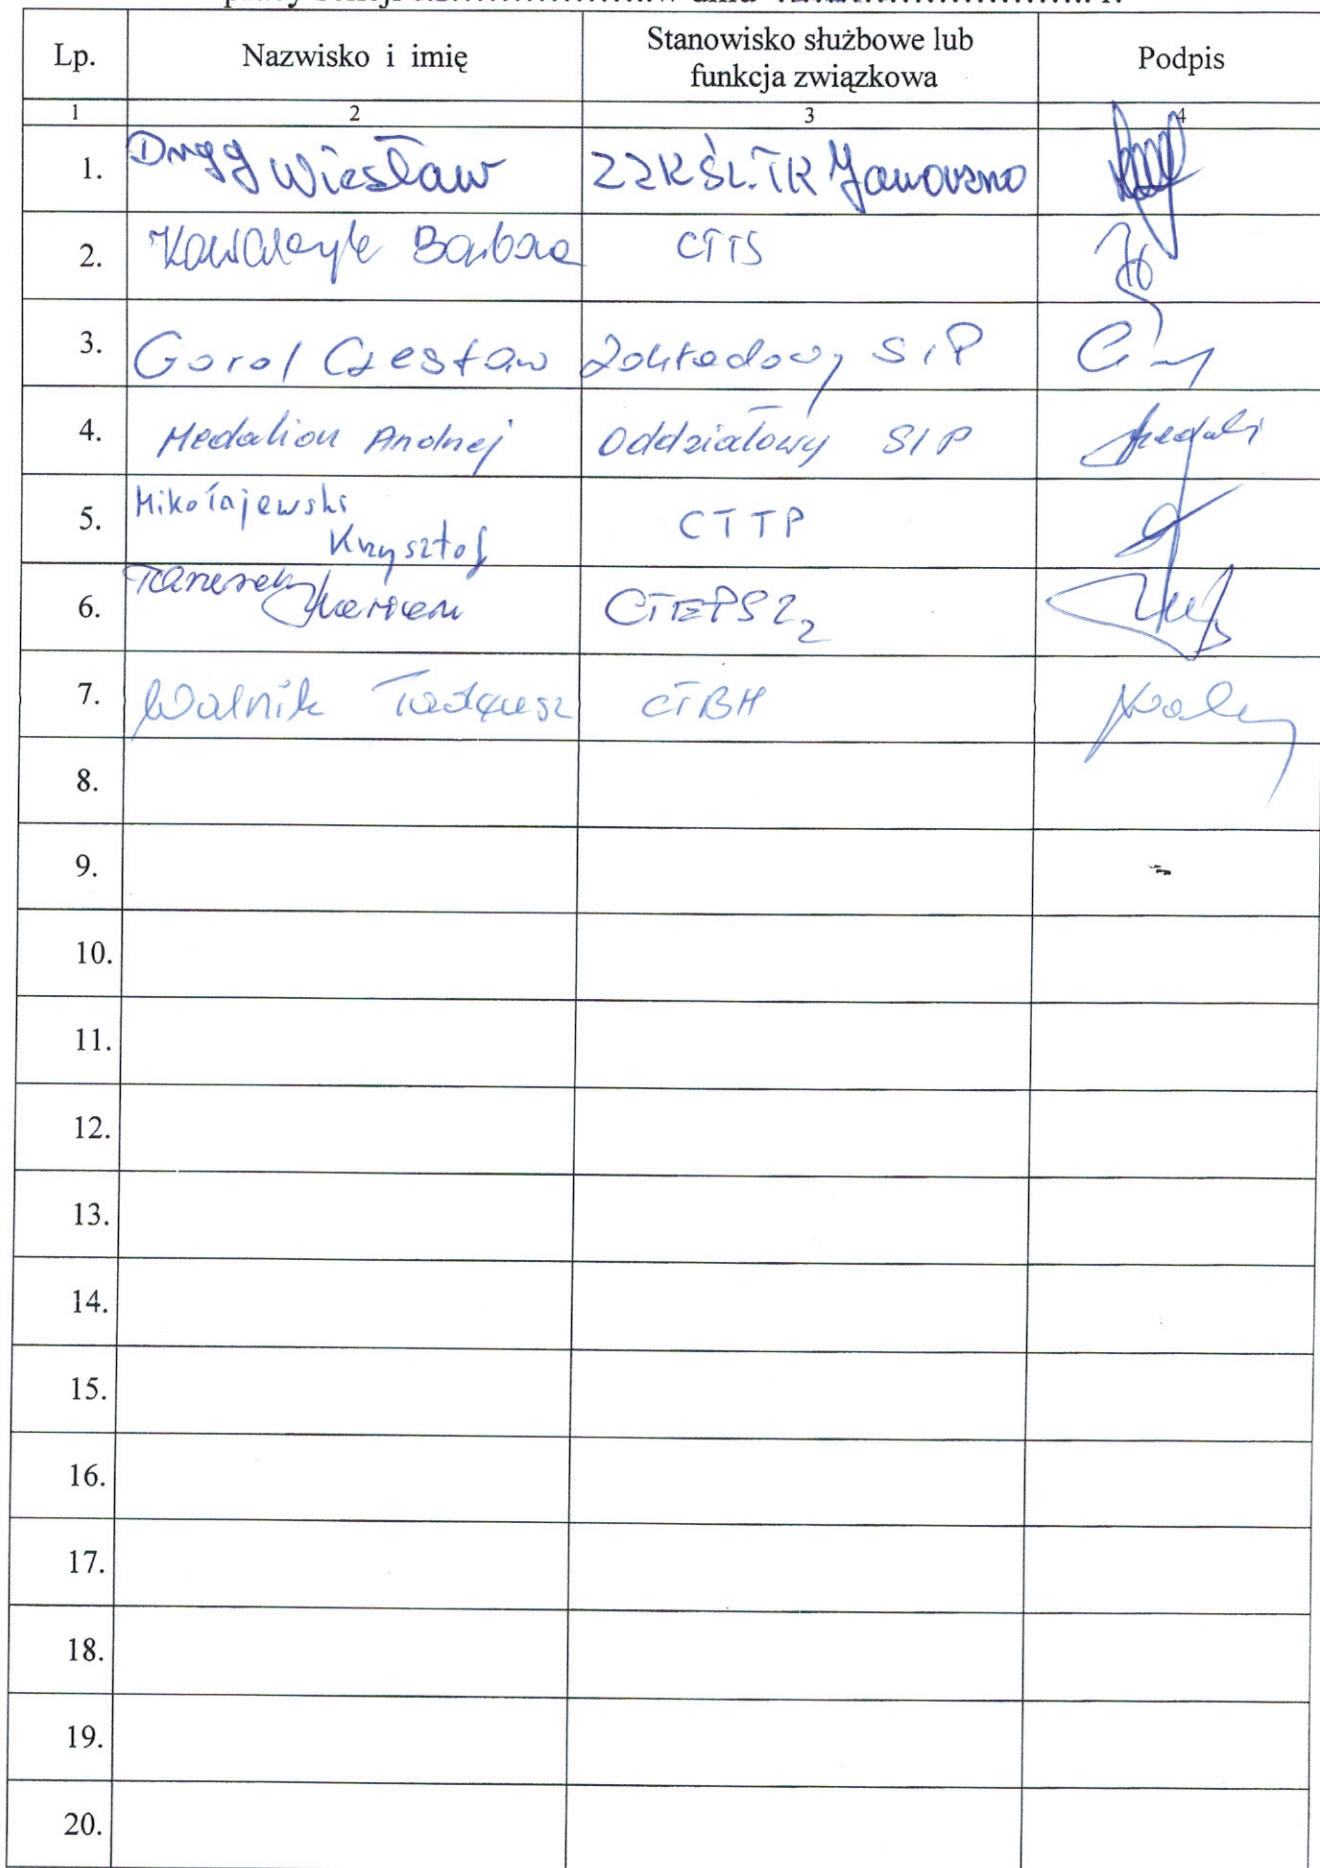 Lp. Nazwisko i imię Stanowisko służbowe lub funkcja związkowa Podpis
1 2 3 4
1. Wiesław ZZK ŚL. TK
2. Kowalczyk Barbara CTTS
3. Gorol Czesław Zakładowy SIP
4. Medalion Andrzej Oddziałowy SIP
5. Mikołajewski Krzysztof CTTP
6.
7. Walnik Tadeusz CTBH
8.
9.
10.
11.
12.
13.
14.
15.
16.
17.
18.
19.
20.